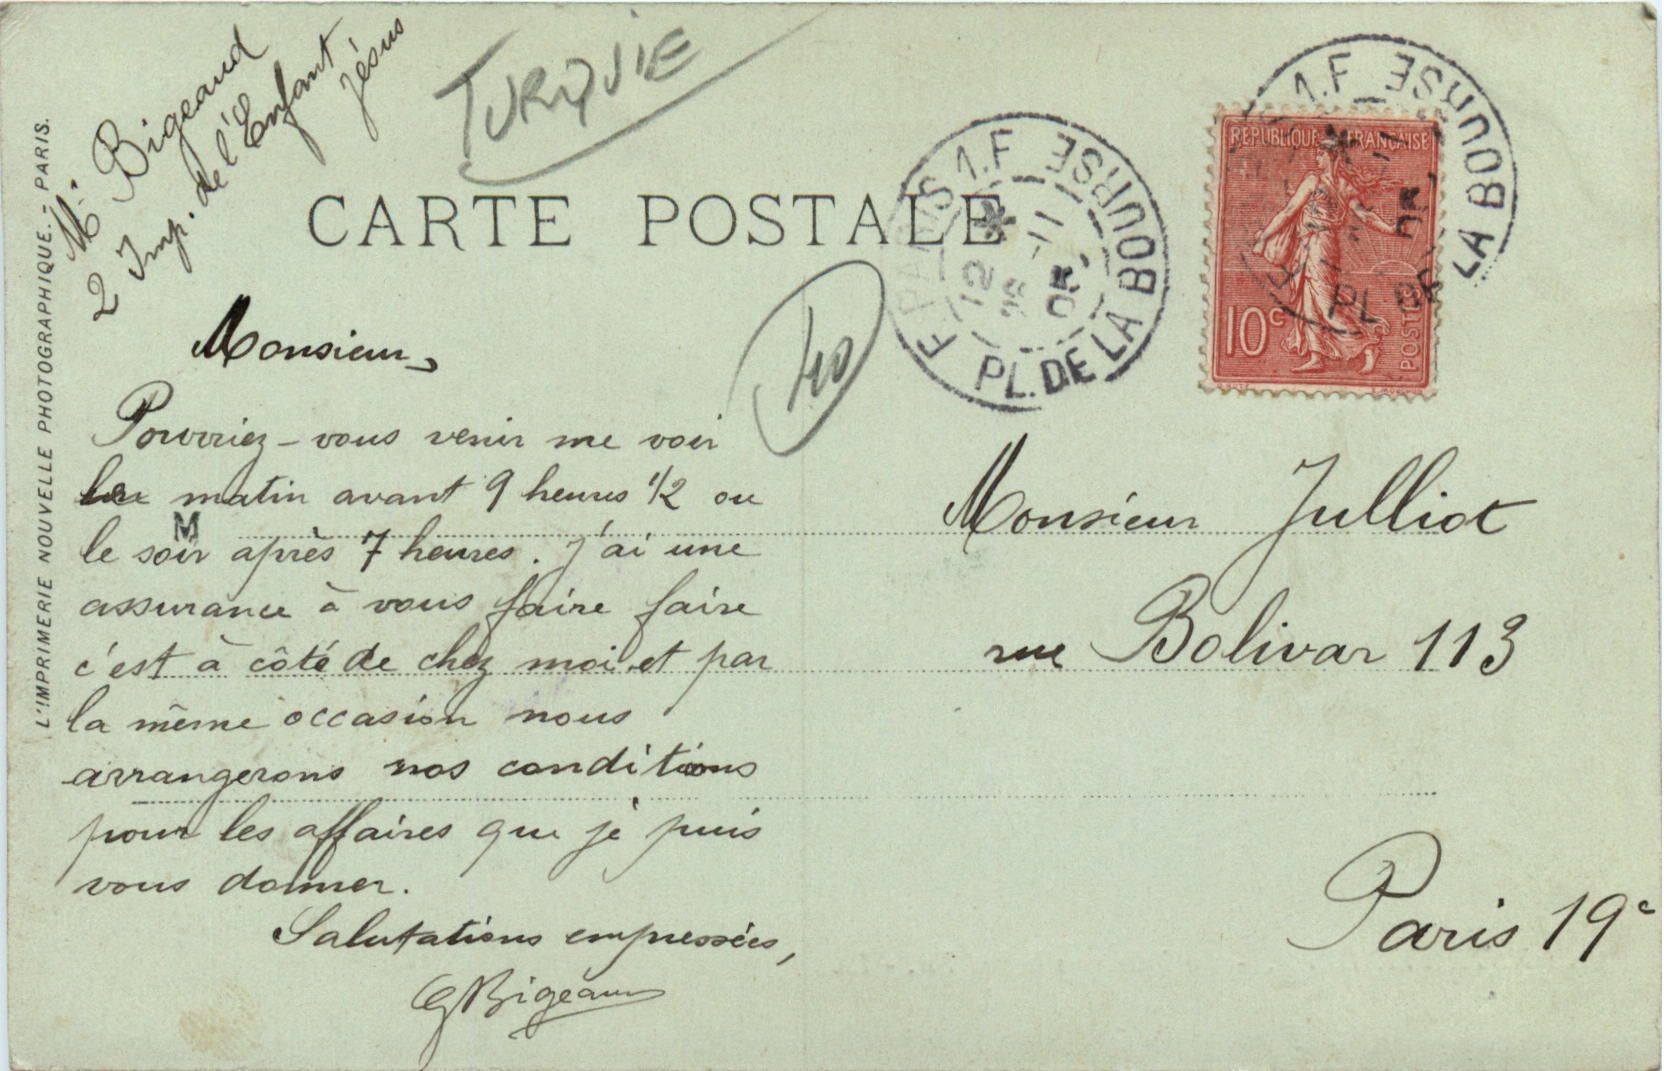 M. Bigeaud
2 Imp. de l'Enfant
Jésus
TURQUIE
CARTE POSTALE
L'IMPRIMERIE NOUVELLE PHOTOGRAPHIQUE. - PARIS.
PARIS 1. F
PL. DE LA BOURSE
12
11
05
1. F
PL. DE LA BOURSE
05
REPUBLIQUE FRANÇAISE
10c
POSTES
Monsieur,
Pourriez-vous venir me voir
le matin avant 9 heures 1/2 ou
M
le soir après 7 heures. J'ai une
assurance à vous faire faire
c'est à côté de chez moi et par
la même occasion nous
arrangerons nos conditions
pour les affaires que je puis
vous donner.
Salutations empressées,
G Bigeaud
Monsieur Julliot
rue Bolivar 113
Paris 19e